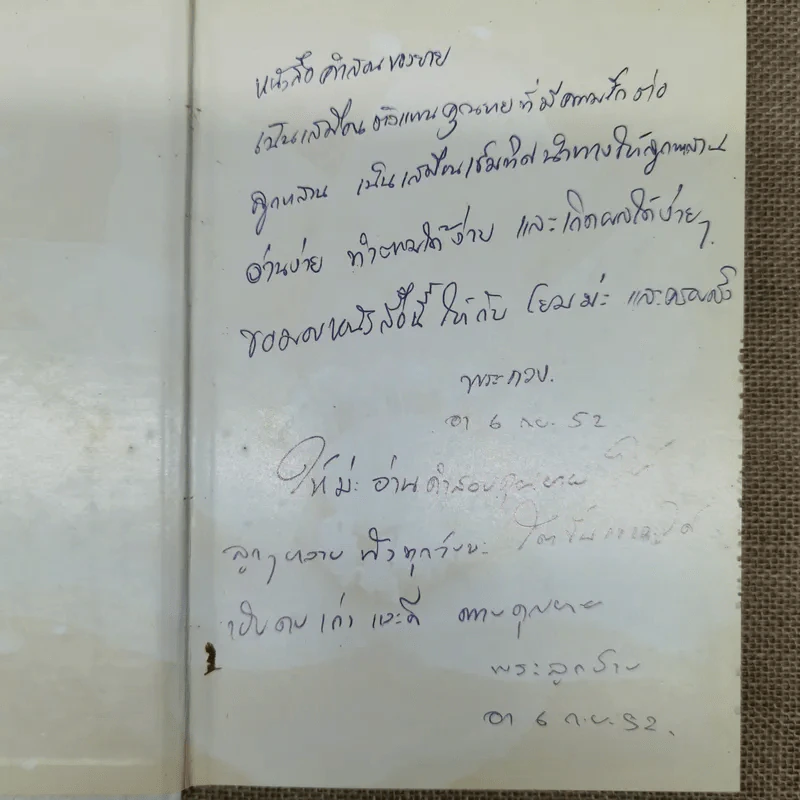 หนังสือ คำสอนของยาย
เป็นเสมือนตัวแทนคุณยายที่มีความรักต่อ
ลูกหลาน เป็นเสมือนเข็มทิศนำทางให้ลูกหลาน
อ่านง่าย ทำตามได้ง่าย และเกิดผลได้ง่ายๆ
ขอมอบหนังสือนี้ ให้กับ โยมม่ะ และครอบครัว
พระ
อา 6 ก.ย. 52
ให้ม่ะ อ่านคำสอนคุณยาย ให้
ลูกๆหลาน ฟังทุกวันนะ
เป็นคน เก่ง และดี ตามคุณยาย
พระลูกชาย
อา 6 ก.ย. 52.